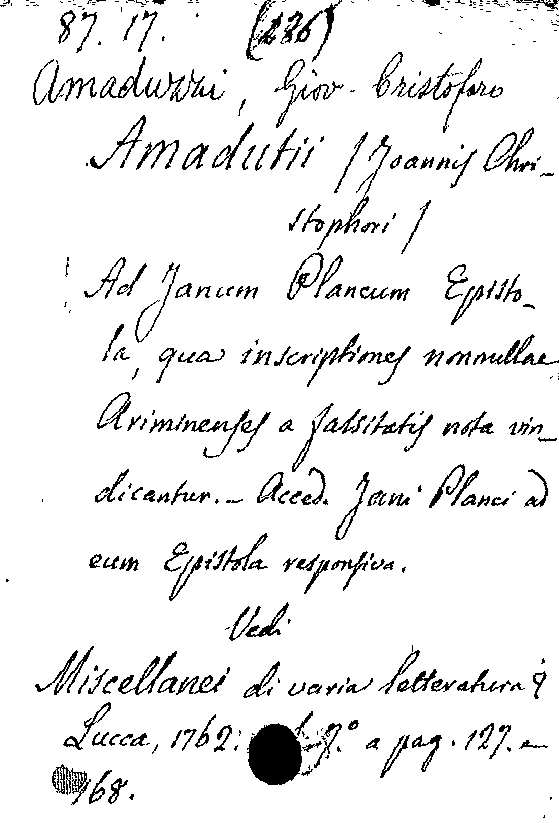 87. 17. (286)
Amaduzzi, Giov. Cristoforo
Amadutii / Joannis Chri-
stophori /
Ad Janum Plancum Episto-
la, qua inscriptiones nonnullae
Ariminenses a falsitatis nota vin-
dicantur. - Acced. Jani Planci ad
eum Epistola responsiva.
Vedi
Miscellanei di varia letteratura
Lucca, 1762: a pag. 127. e
168.